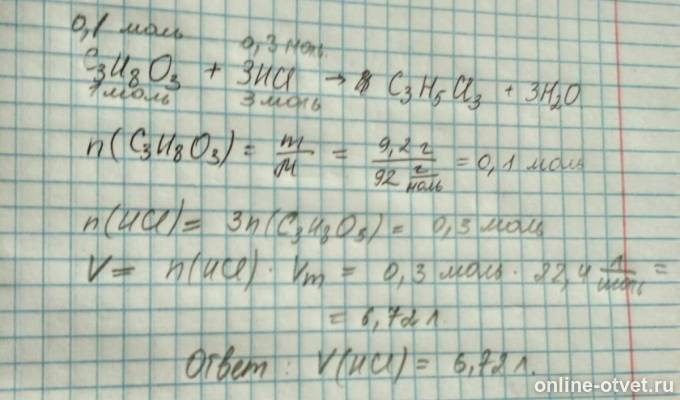 0,1 моль 0,3 моль
C₃H₈O₃ + 3HCl → C₃H₅Cl₃ + 3H₂O
1 моль 3 моль
n(C₃H₈O₃) = m/M = 9,2 г / 92 г/моль = 0,1 моль
n(HCl) = 3n(C₃H₈O₃) = 0,3 моль
V = n(HCl) · Vm = 0,3 моль · 22,4 л/моль =
= 6,72 л.
Ответ: V(HCl) = 6,72 л.
online-otvet.ru